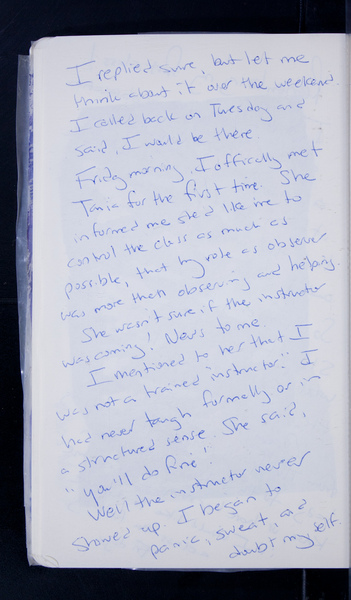 I replied sure, but let me
think about it over the weekend.
I called back on Tuesday and
said, I would be there.
Friday morning, I offically met
Tania for the first time. She
informed me she'd like me to
control the class as much as
possible, that my role as observer
was more then observing and helping.
She wasn't sure if the instructor
was coming! News to me.
I mentioned to her that I
was not a trained "instructor." I
had never tough formally or in
a structured sense. She said,
"you'll do fine"!
Well the instructor never
showed up. I began to
panic, sweat, and
doubt my self.